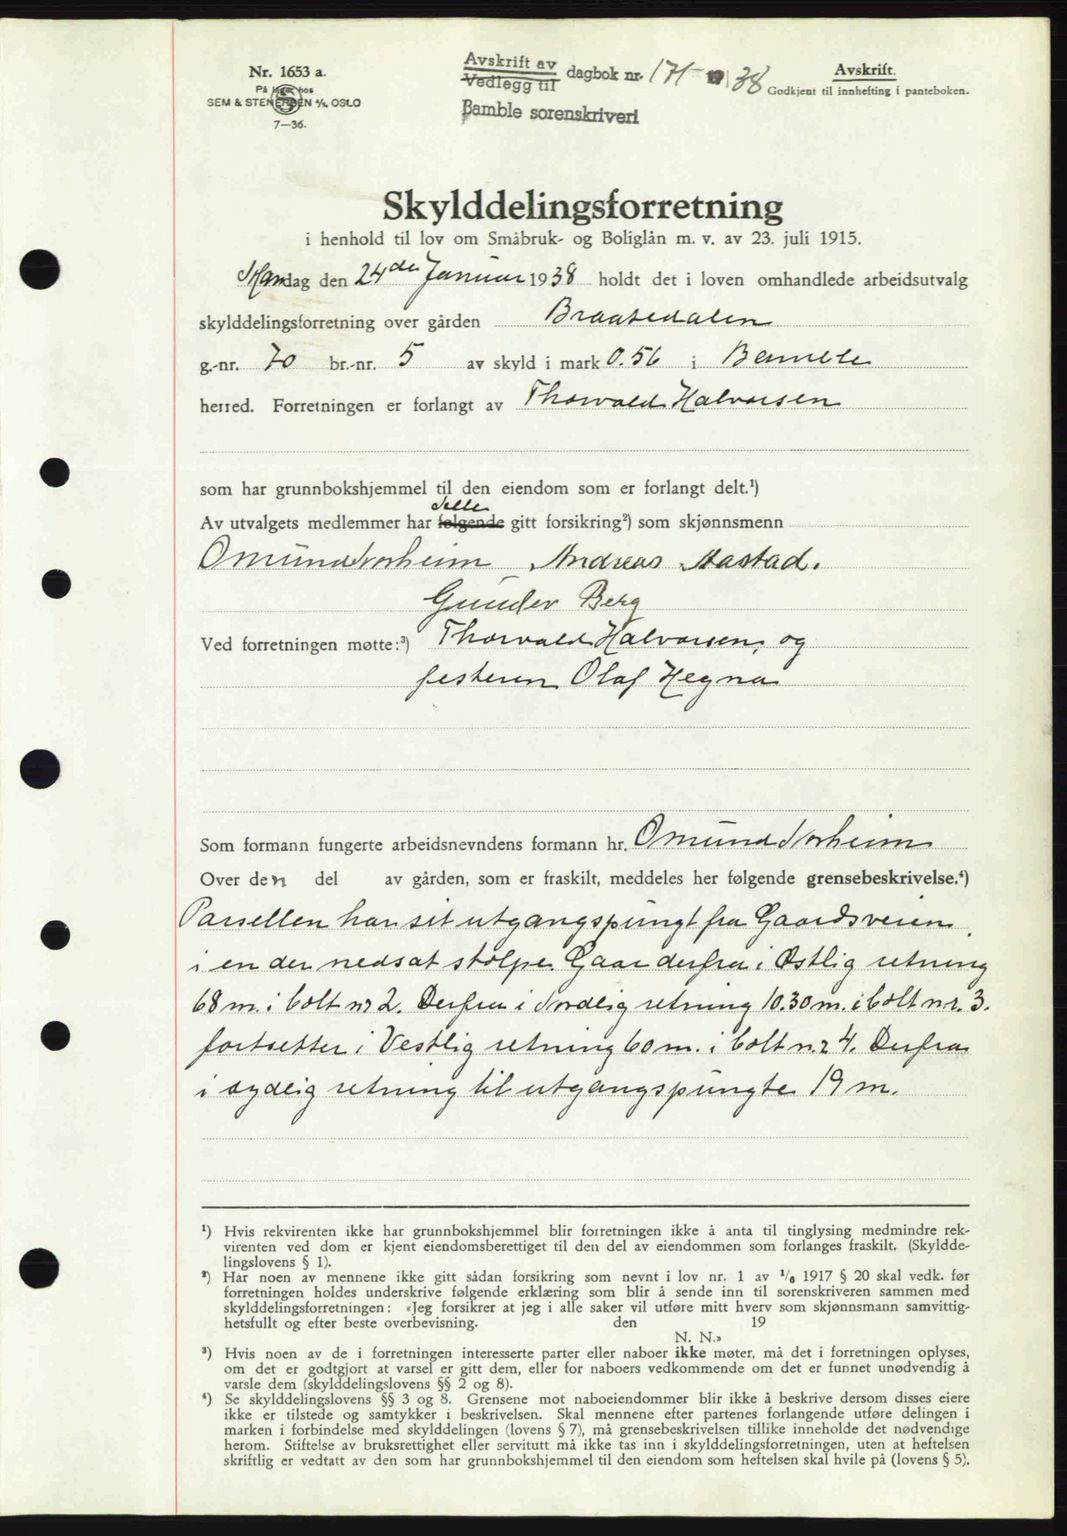 Nr. 1653 a.
På lager hos
SEM & STENERSEN A/S, OSLO
7—36.
Avskrift av
Vedlegg til
dagbok nr. 171 - 1938
Bamble sorenskriveri
Avskrift.
Godkjent til innhefting i panteboken.
Skylddelingsforretning
i henhold til lov om Småbruk- og Boliglån m. v. av 23. juli 1915.
Mandag den 24de Januar 1938 holdt det i loven omhandlede arbeidsutvalg
skylddelingsforretning over gården Braatedalen
g.-nr. 70 br.-nr. 5 av skyld i mark 0.56 i Bamble
herred. Forretningen er forlangt av Thorvald Halvorsen
som har grunnbokshjemmel til den eiendom som er forlangt delt.¹)
Av utvalgets medlemmer har følgende alle gitt forsikring²) som skjønnsmenn
Omund Norheim Andreas Aastad.
Gunder Berg
Ved forretningen møtte:³) Thorvald Halvorsen, og
festeren Olaf Hegna
Som formann fungerte arbeidsnevndens formann hr. Omund Norheim
Over den del av gården, som er fraskilt, meddeles her følgende grensebeskrivelse.⁴)
Parsellen har sit utgangspungt fra Gaardsveien
i en der nedsat stolpe. Gaar derfra i Østlig retning
68 m. i bolt nr 2. Derfra i Nordlig retning 10.30 m. i bolt nr. 3.
fortsetter i Vestlig retning 60 m. i bolt nr 4. Derfra
i sydlig retning til utgangspungte 19 m.
¹) Hvis rekvirenten ikke har grunnbokshjemmel blir forretningen ikke å anta til tinglysing medmindre rek-
virenten ved dom er kjent eiendomsberettiget til den del av eiendommen som forlanges fraskilt. (Skyldde-
lingslovens § 1).
²) Har noen av mennene ikke gitt sådan forsikring som nevnt i lov nr. 1 av 1/6 1917 § 20 skal vedk. før
forretningen holdes underskrive følgende erklæring som blir å sende inn til sorenskriveren sammen med
skylddelingsforretningen: «Jeg forsikrer at jeg i alle saker vil utføre mitt hverv som skjønnsmann samvittig-
hetsfullt og efter beste overbevisning. den 19
N. N.»
³) Hvis noen av de i forretningen interesserte parter eller naboer ikke møter, må det i forretningen oplyses,
om det er godtgjort at varsel er gitt dem, eller for naboers vedkommende om det er funnet unødvendig å
varsle dem (skylddelingslovens §§ 2 og 8).
⁴) Se skylddelingslovens §§ 3 og 8. Grensene mot naboeiendommer blir ikke å beskrive dersom disses eiere
ikke er tilstede og samtykker i beskrivelsen. Skal mennene efter partenes forlangende utføre delingen i
marken i forbindelse med skylddelingen (lovens § 7), må grensebeskrivelsen tillike inneholde det nødvendige
herom. Stiftelse av bruksrettighet eller servitutt må ikke tas inn i skylddelingsforretningen, uten at heftelsen
skriftlig er vedtatt av den som har grunnbokshjemmel til den eiendom som heftelsen skal hvile på (lovens § 5).